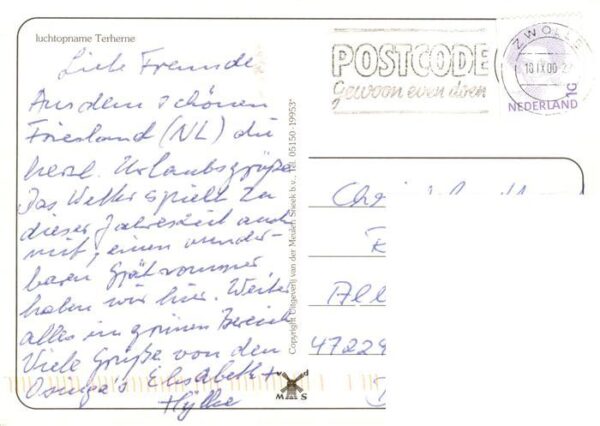 luchtopname Terherne
Liebe Freunde
Aus dem schönen
Friesland (NL) die
herzl. Urlaubsgrüße
Das Wetter spielt zu
dieser Jahreszeit auch
mit, einen wunder-
baren Spätsommer
haben wir hier. Weiter
alles im grünen Bereich
Viele Grüße von den
Elisabeth +
Copyright Uitgeverij van der Meulen Sneek b.v., Tel. 05150-19953*
vd
M S
POSTCODE
Gewoon even doen
ZWOLLE
18 IX 00
NEDERLAND
All
47229